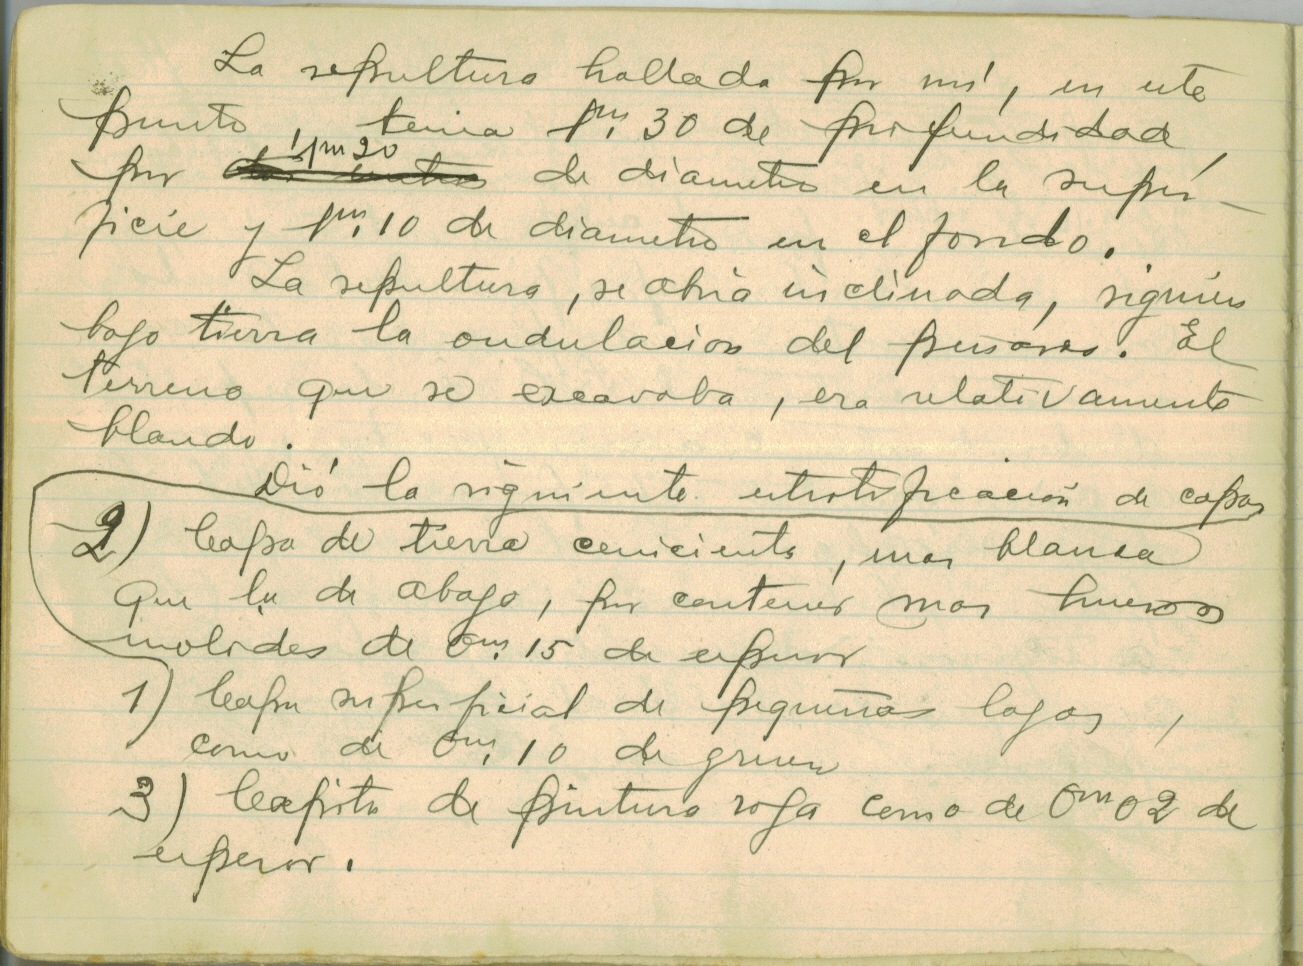 La sepultura hallada por mí, en este
punto, tenia 1m. 30 de profundidad
1m 20
por de diametro en la super-
ficie y 1m. 10 de diametro en el fondo.
La sepultura, se abria inclinada, siguien
bajo tierra la ondulacion del peñasco. El
terreno que se excavaba, era relativamente
blando.
Dió la siguiente estratificación de capas
2) Capa de tierra cenicienta, mas blanca
que la de abajo, por contener mas huesos
molidos de 0m. 15 de espesor
1) Capa superficial de pequeñas lajas,
como de 0m. 10 de grueso
3) Capita de pintura roja como de 0m 02 de
espesor.